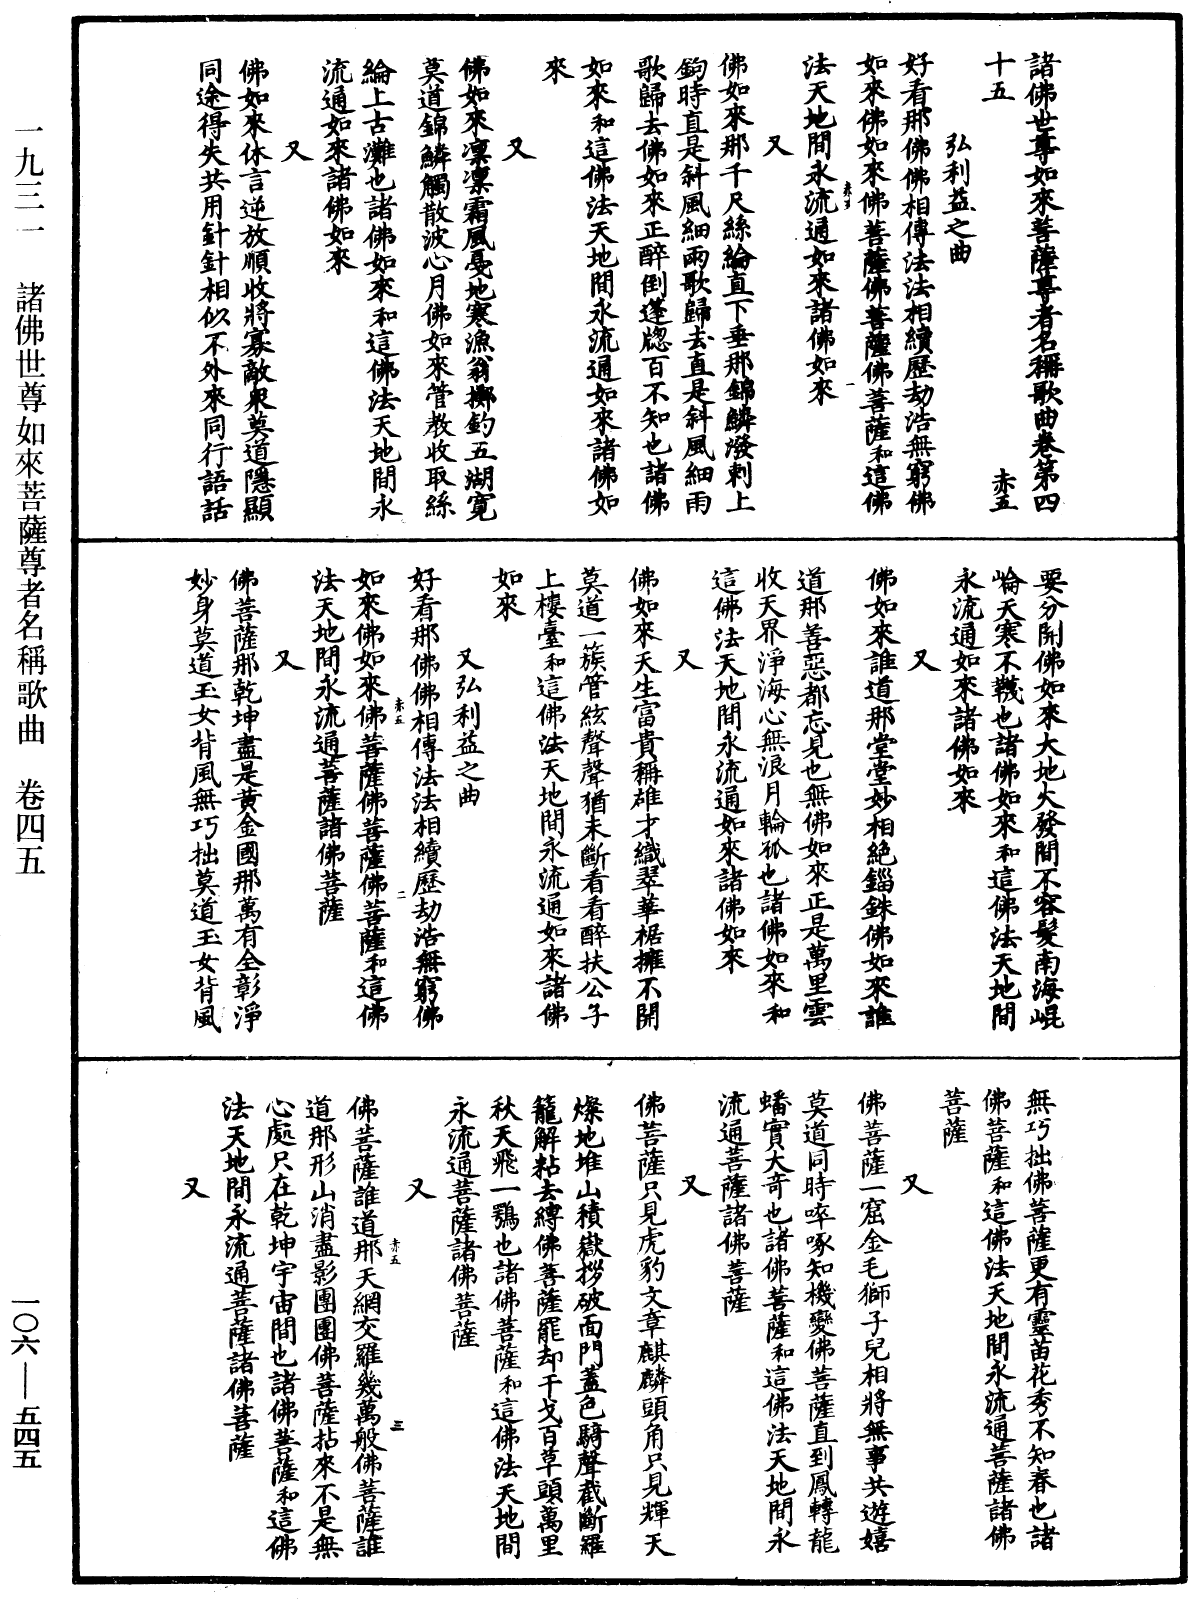 諸佛世尊如來菩薩尊者名稱歌曲卷第四
十五　赤五
弘利益之曲
好看那佛佛相傳法法相續歷劫浩無窮佛
如來佛如來佛菩薩佛菩薩佛菩薩和這佛
法天地間永流通如來諸佛如來
又
佛如來那千尺絲綸直下垂那錦鱗潑剌上
鉤時直是斜風細雨歌歸去直是斜風細雨
歌歸去佛如來正醉倒蓬牕百不知也諸佛
如來和這佛法天地間永流通如來諸佛如
來
又
佛如來凜凜霜風戛地寒漁翁擲釣五湖寬
莫道錦鱗觸散波心月佛如來管教收取絲
綸上古灘也諸佛如來和這佛法天地間永
流通如來諸佛如來
又
佛如來休言逆放順收將寡敵衆莫道隱顯
同途得失共用針針相似不外來同行語話
要分開佛如來大地火發間不容髮南海崐
崘天寒不韈也諸佛如來和這佛法天地間
永流通如來諸佛如來
又
佛如來誰道那堂堂妙相絶錙銖佛如來誰
道那善惡都忘見也無佛如來正是萬里雲
收天界淨海心無浪月輪孤也諸佛如來和
這佛法天地間永流通如來諸佛如來
又
佛如來天生富貴稱雄才織翠華裾擁不開
莫道一簇管絃聲聲猶未斷看看醉扶公子
上樓臺和這佛法天地間永流通如來諸佛
如來
又弘利益之曲
好看那佛佛相傳法法相續歷劫浩無窮佛
如來佛如來佛菩薩佛菩薩佛菩薩和這佛
法天地間永流通菩薩諸佛菩薩
又
佛菩薩那乾坤盡是黃金國那萬有全彰淨
妙身莫道玉女背風無巧拙莫道玉女背風
無巧拙佛菩薩更有靈苗花秀不知春也諸
佛菩薩和這佛法天地間永流通菩薩諸佛
菩薩
又
佛菩薩一窟金毛獅子兒相將無事共遊嬉
莫道同時啐啄知機變佛菩薩直到鳳轉龍
蟠實大奇也諸佛菩薩和這佛法天地間永
流通菩薩諸佛菩薩
又
佛菩薩只見虎豹文章麒麟頭角只見輝天
燦地堆山積嶽拶破面門蓋色騎聲截斷羅
籠解粘去縛佛菩薩罷却干戈百草頭萬里
秋天飛一鶚也諸佛菩薩和這佛法天地間
永流通菩薩諸佛菩薩
又
佛菩薩誰道那天網交羅幾萬般佛菩薩誰
道那形山消盡影團團佛菩薩拈來不是無
心處只在乾坤宇宙間也諸佛菩薩和這佛
法天地間永流通菩薩諸佛菩薩
又
赤五　一
赤五　二
赤五　三
一九三一　諸佛世尊如來菩薩尊者名稱歌曲　卷四五
一〇六—五四五